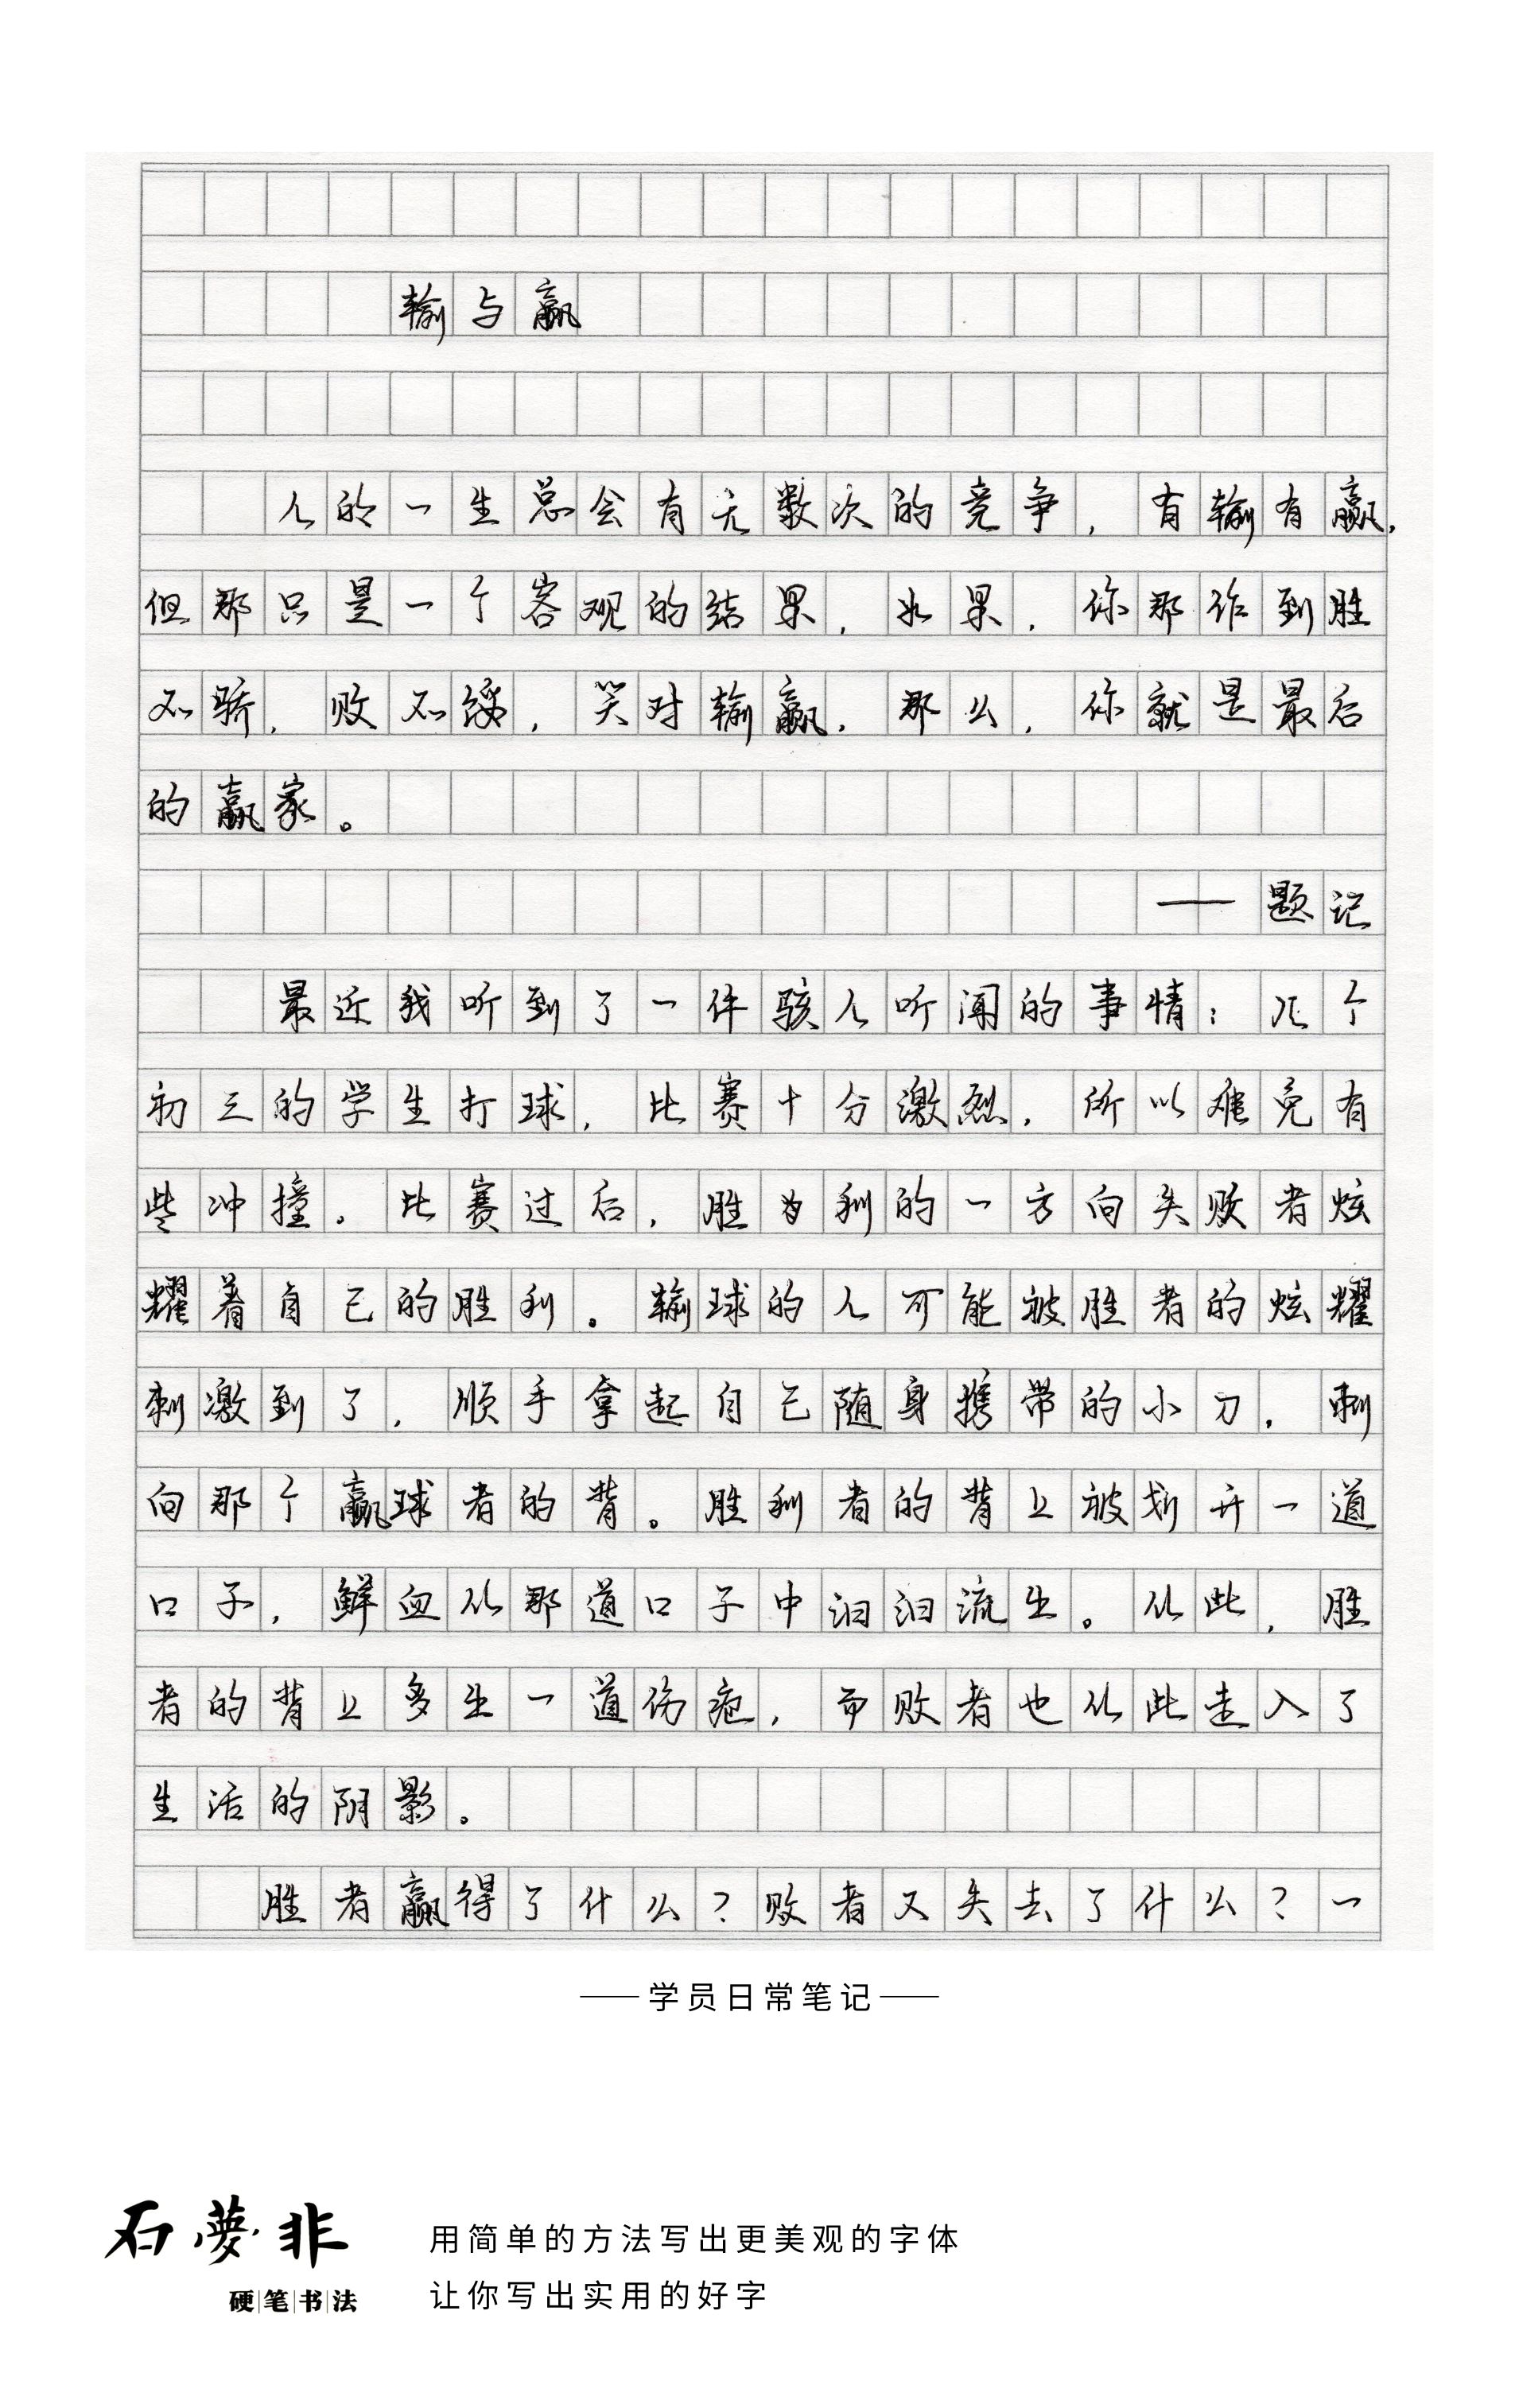 输与赢
人的一生总会有无数次的竞争，有输有赢，
但那只是一个客观的结果，如果，你那作到胜
不骄，败不绥，笑对输赢，那么，你就是最后
的赢家。
——题记
最近我听到了一件骇人听闻的事情：几个
初三的学生打球，比赛十分激烈，所以难免有
些冲撞。比赛过后，胜为利的一方向失败者炫
耀着自己的胜利。输球的人可能被胜者的炫耀
刺激到了，顺手拿起自己随身携带的小刀，刺
向那个赢球者的背。胜利者的背上被划开一道
口子，鲜血从那道口子中汩汩流出。从此，胜
者的背上多出一道伤疤，而败者也从此走入了
生活的阴影。
胜者赢得了什么？败者又失去了什么？一
——学员日常笔记——
石夢非
硬笔书法
用简单的方法写出更美观的字体
让你写出实用的好字